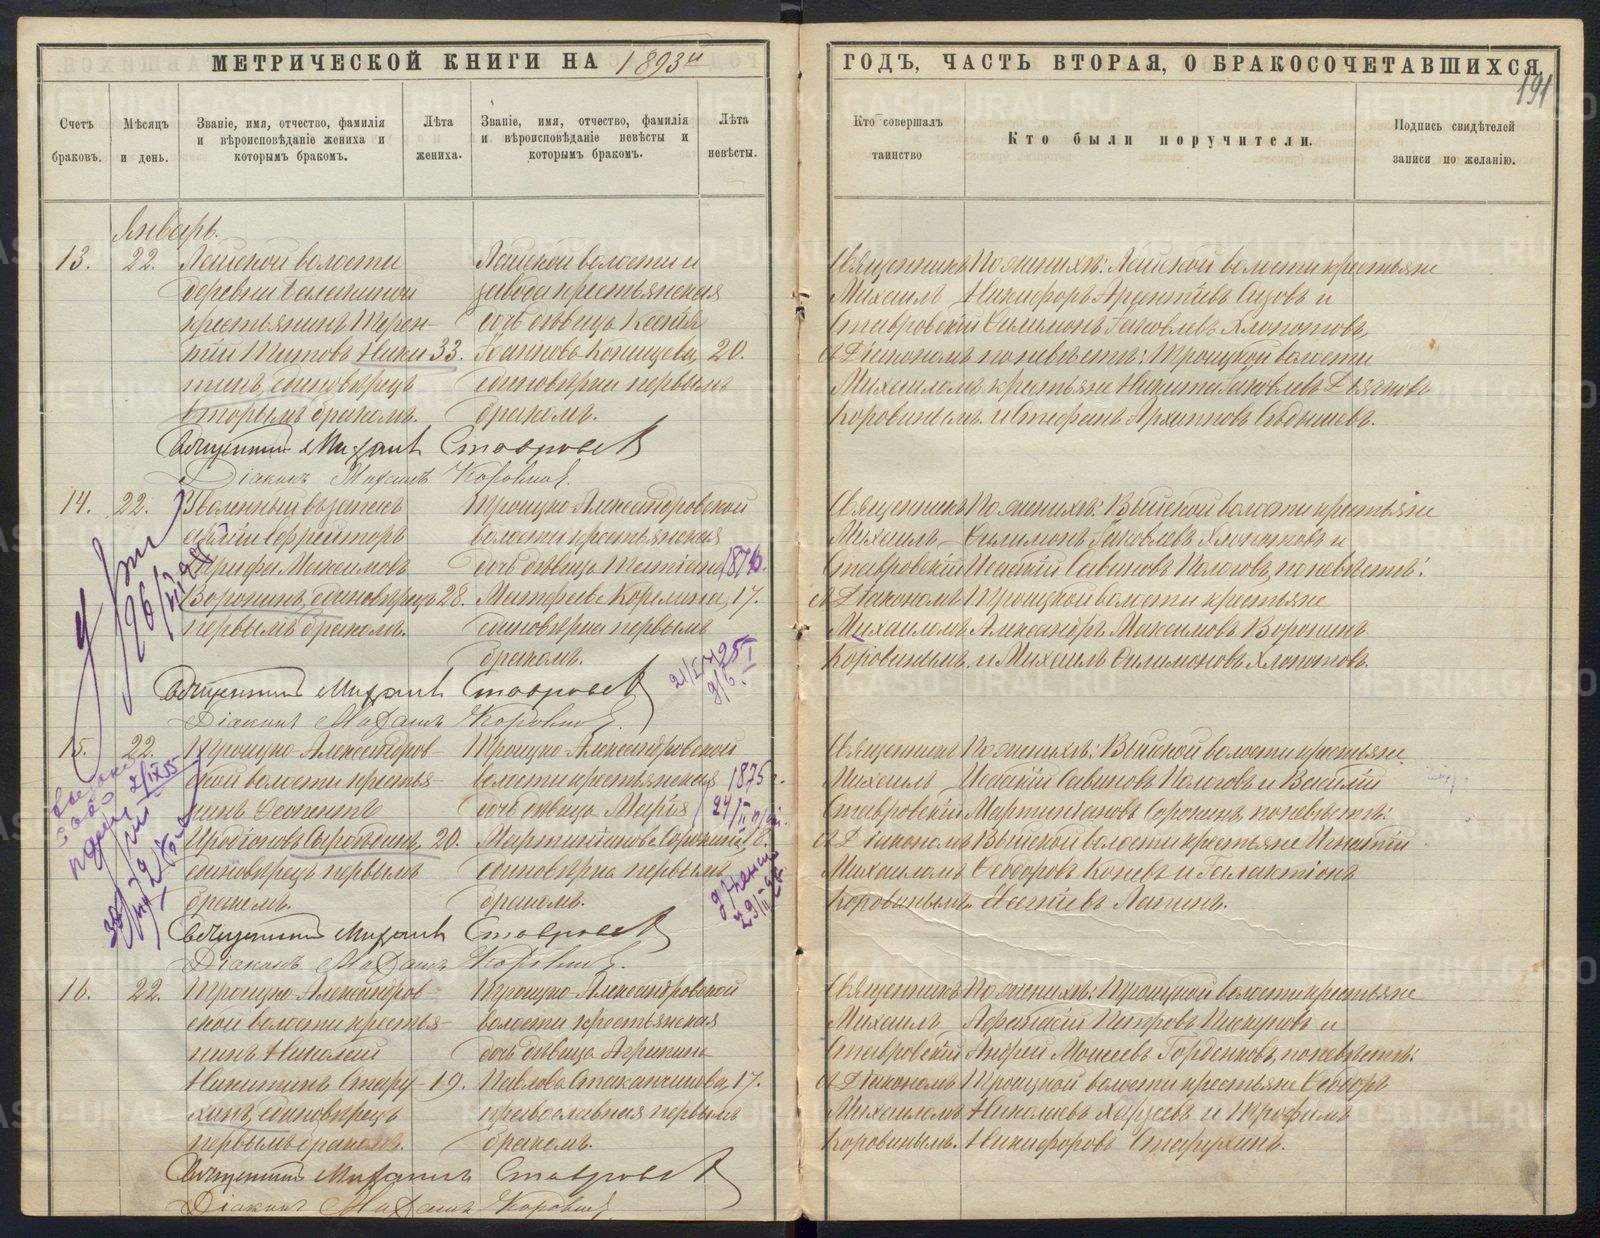 МЕТРИЧЕСКОЙ КНИГИ НА 1893й
ГОДЪ, ЧАСТЬ ВТОРАЯ, О БРАКОСОЧЕТАВШИХСЯ.
191
Счетъ браковъ.
Мѣсяцъ и день.
Званіе, имя, отчество, фамилія
и вѣроисповѣданіе жениха и
которымъ бракомъ.
Лѣта жениха.
Званіе, имя, отчество, фамилія
и вѣроисповѣданіе невѣсты и
которымъ бракомъ.
Лѣта невѣсты.
Кто совершалъ таинство
Кто были поручители.
Подпись свидѣтелей
записи по желанію.
Январь.
13.
22.
Лайской волости
деревни
крестьянинъ Терен-
тій Титовъ Ники-
тинъ, единовѣрецъ
вторымъ бракомъ.
33.
Лайской волости и
завода крестьянская
дочь дѣвица Ксенія
Іоаннова Конищева,
единовѣрка первымъ
бракомъ.
20.
Священникъ
Михаилъ
Ставровскій
съ Діакономъ
Михаиломъ
Коровинымъ.
По женихѣ: Лайской волости крестьяне
Никифоръ Арентіевъ Сизовъ и
Филимонъ Іаковлевъ Хлопотовъ,
по невѣстѣ: Троицкой волости
крестьяне Никита Іаковлевъ
и Стефанъ Архиповъ
Священникъ Михаилъ Ставровскій
Діаконъ Михаилъ Коровинъ.
14.
22.
Уволенный въ запасъ
арміи ефрейторъ
Трифъ Максимовъ
Воронинъ, единовѣрецъ
первымъ бракомъ.
28.
Троицко-Александровской
волости крестьянская
дочь дѣвица Татіана
Матфеева Корелина,
единовѣрка первымъ
бракомъ.
17.
1876.
Священникъ
Михаилъ
Ставровскій
съ Діакономъ
Михаиломъ
Коровинымъ.
По женихѣ: Выйской волости крестьяне
Филимонъ Іаковлевъ Хлопотовъ и
Исаакій Савиновъ Пологовъ, по невѣстѣ:
Троицкой волости крестьяне
Александръ Максимовъ Воронинъ
и Михаилъ Филимоновъ Хлопотовъ.
Священникъ Михаилъ Ставровскій
Діаконъ Михаилъ Коровинъ.
15.
22.
Троицко-Александров-
ской волости крестья-
нинъ
Иродіоновъ
единовѣрецъ первымъ
бракомъ.
20.
Троицко-Александровской
волости крестьянская
дочь дѣвица Марія
Мартиніанова Сорокина,
единовѣрка первымъ
бракомъ.
1875 г.
Священникъ
Михаилъ
Ставровскій
съ Діакономъ
Михаиломъ
Коровинымъ.
По женихѣ: Выйской волости крестьяне
Исаакій Савиновъ Пологовъ и Василій
Мартиніановъ Сорокинъ, по невѣстѣ:
Выйской волости крестьяне Игнатій
Ѳеодоровъ Копевъ и Галактіонъ
Лапинъ.
Священникъ Михаилъ Ставровскій
Діаконъ Михаилъ Коровинъ.
16.
22.
Троицко-Александров-
ской волости крестья-
нинъ Николай
Никитинъ Стару-
хинъ, единовѣрецъ
первымъ бракомъ.
19.
Троицко-Александровской
волости крестьянская
дочь дѣвица Агрипина
Павлова Стаканчикова,
православная первымъ
бракомъ.
17.
Священникъ
Михаилъ
Ставровскій
съ Діакономъ
Михаиломъ
Коровинымъ.
По женихѣ: Троицкой волости крестьяне
Афанасій Петровъ Пискуновъ и
Андрей Моисеевъ Горденковъ, по невѣстѣ:
Троицкой волости крестьяне Ѳеодоръ
Николаевъ и Трофимъ
Никифоровъ Старухинъ.
Священникъ Михаилъ Ставровскій
Діаконъ Михаилъ Коровинъ.
METRIKI.GASO-URAL.RU